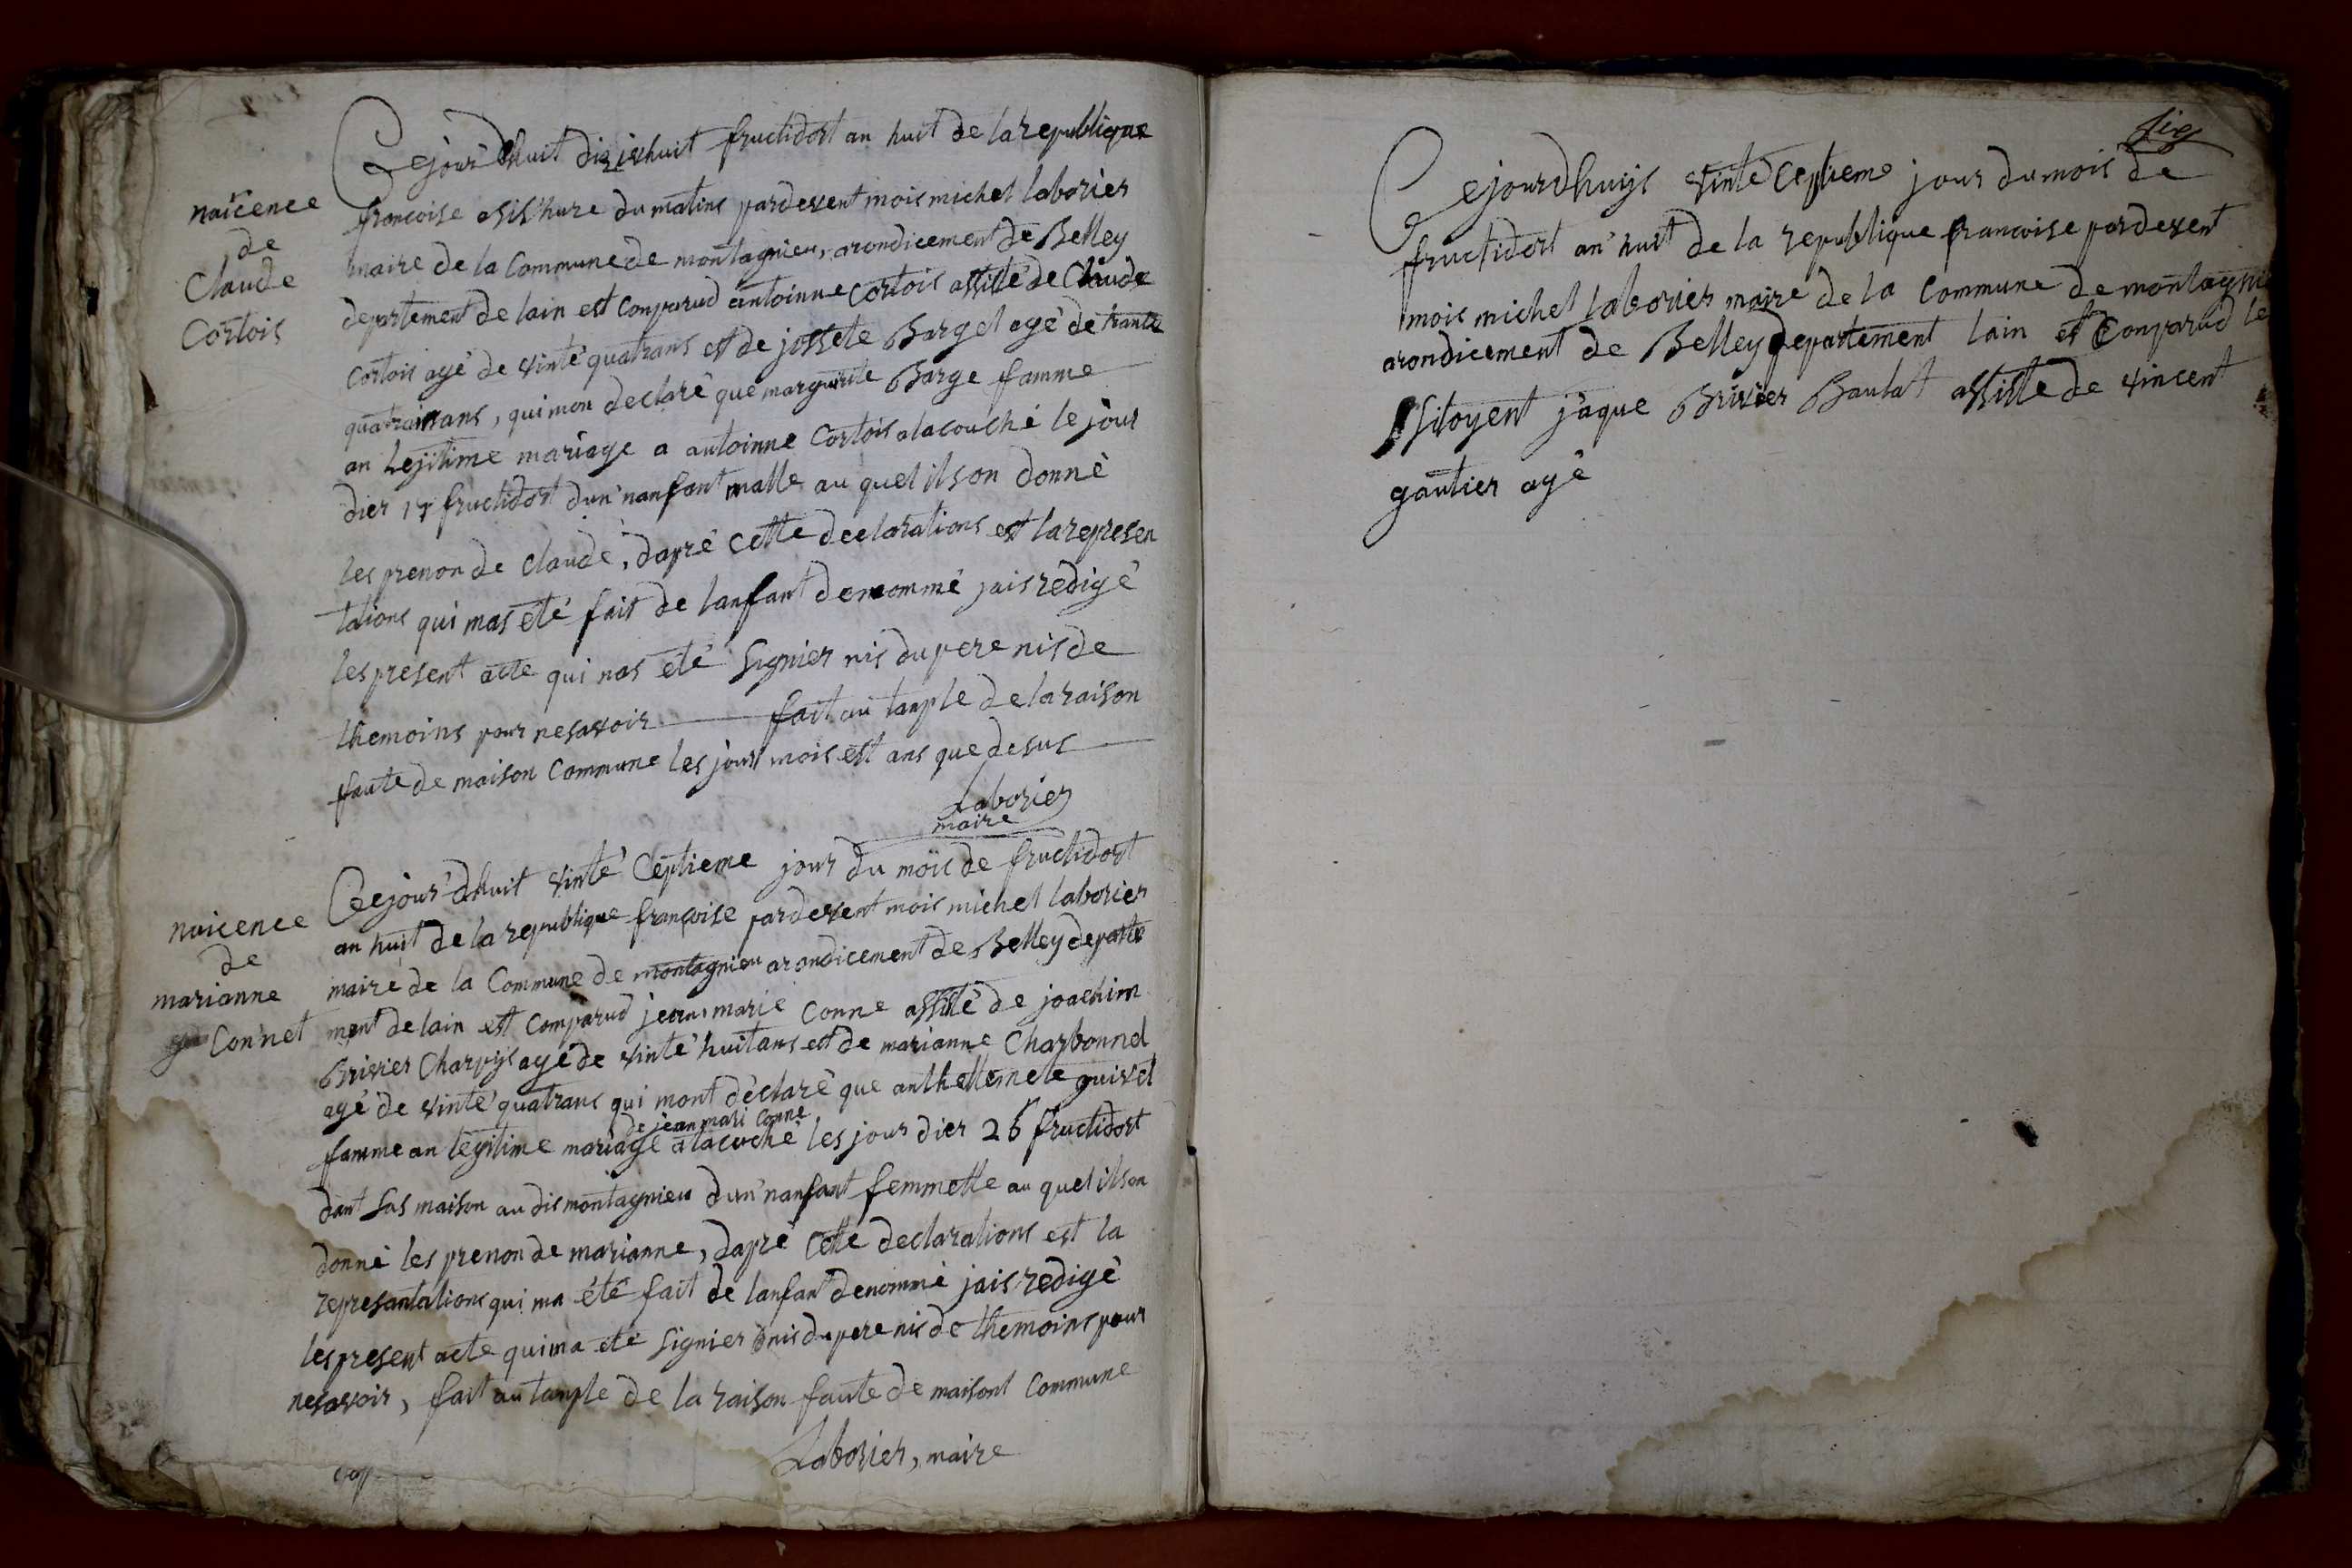 naicence
de
Claude
Cortois
Cejour'dhuit dizixhuit fructidort an huit de la republique
francoise asis'hure du matins pardevent mois michel laborier
maire de la Commune de montagnieu, arondicement de Belley
departement de lain est Conparud antoinne Cortois assité de Claude
Cortois agé de vinte quatrans est de jossete Barget agé de trante
quatraissans, qui mon declaré que margurite Barge famme
an Lejitime mariage a antoinne Cortois alacouché le jour
dier 17 fructidort dun'nanfant malle au quel ilson donné
les prenon de claude, dapré Cette declarations est la represen
tations qui mas été fait de lanfant denommé jais redigé
les present acte qui nas été Signier nis du pere nis de
themoins pour nesavoir fait au tanple de la raison
faute de maison Commune les jour mois est ans que desus
Laborier
maire
naicence
de
marianne
Connet
Cejour'dhuit vinté Céptieme jour du mois de fructidort
an huit de la republique françoise pardevent mois michel laborier
maire de la Commune de montagnieu arondicement de Belley departe
ment de lain est Comparud jean marie Conne assité de joachim
Brivier Charpijs agé de vinte huitans est de marianne Charbonnel
agé de vinte quatrans qui mont déclaré que anthellemete guivet
de jean mari Conne
famme an légitime mariage alacuché les jour dier 26 fructidort
dant sas maison au dis montagnieu dun'nanfant femmelle au quel ilson
donné les prenon de marianne, dapré Cette declarations est la
represantations qui ma été fait de lanfant denommé jais redigé
les present acte qui na eté Signier nis du pere nis de themoins pour
nesavoir, fait au tanple de la raison faute de maisont Commune
Laborier, maire
Cejourdhuijs vinte Ceptieme jour du mois de
fructidort an huit de la republique francoise pardevent
mois michel laborier maire de la Commune de montagnie
arondicement de Belley departement lain est Conparud le
Sitoyent jaque Brivier Baulat assiste de vincent
gautier agé